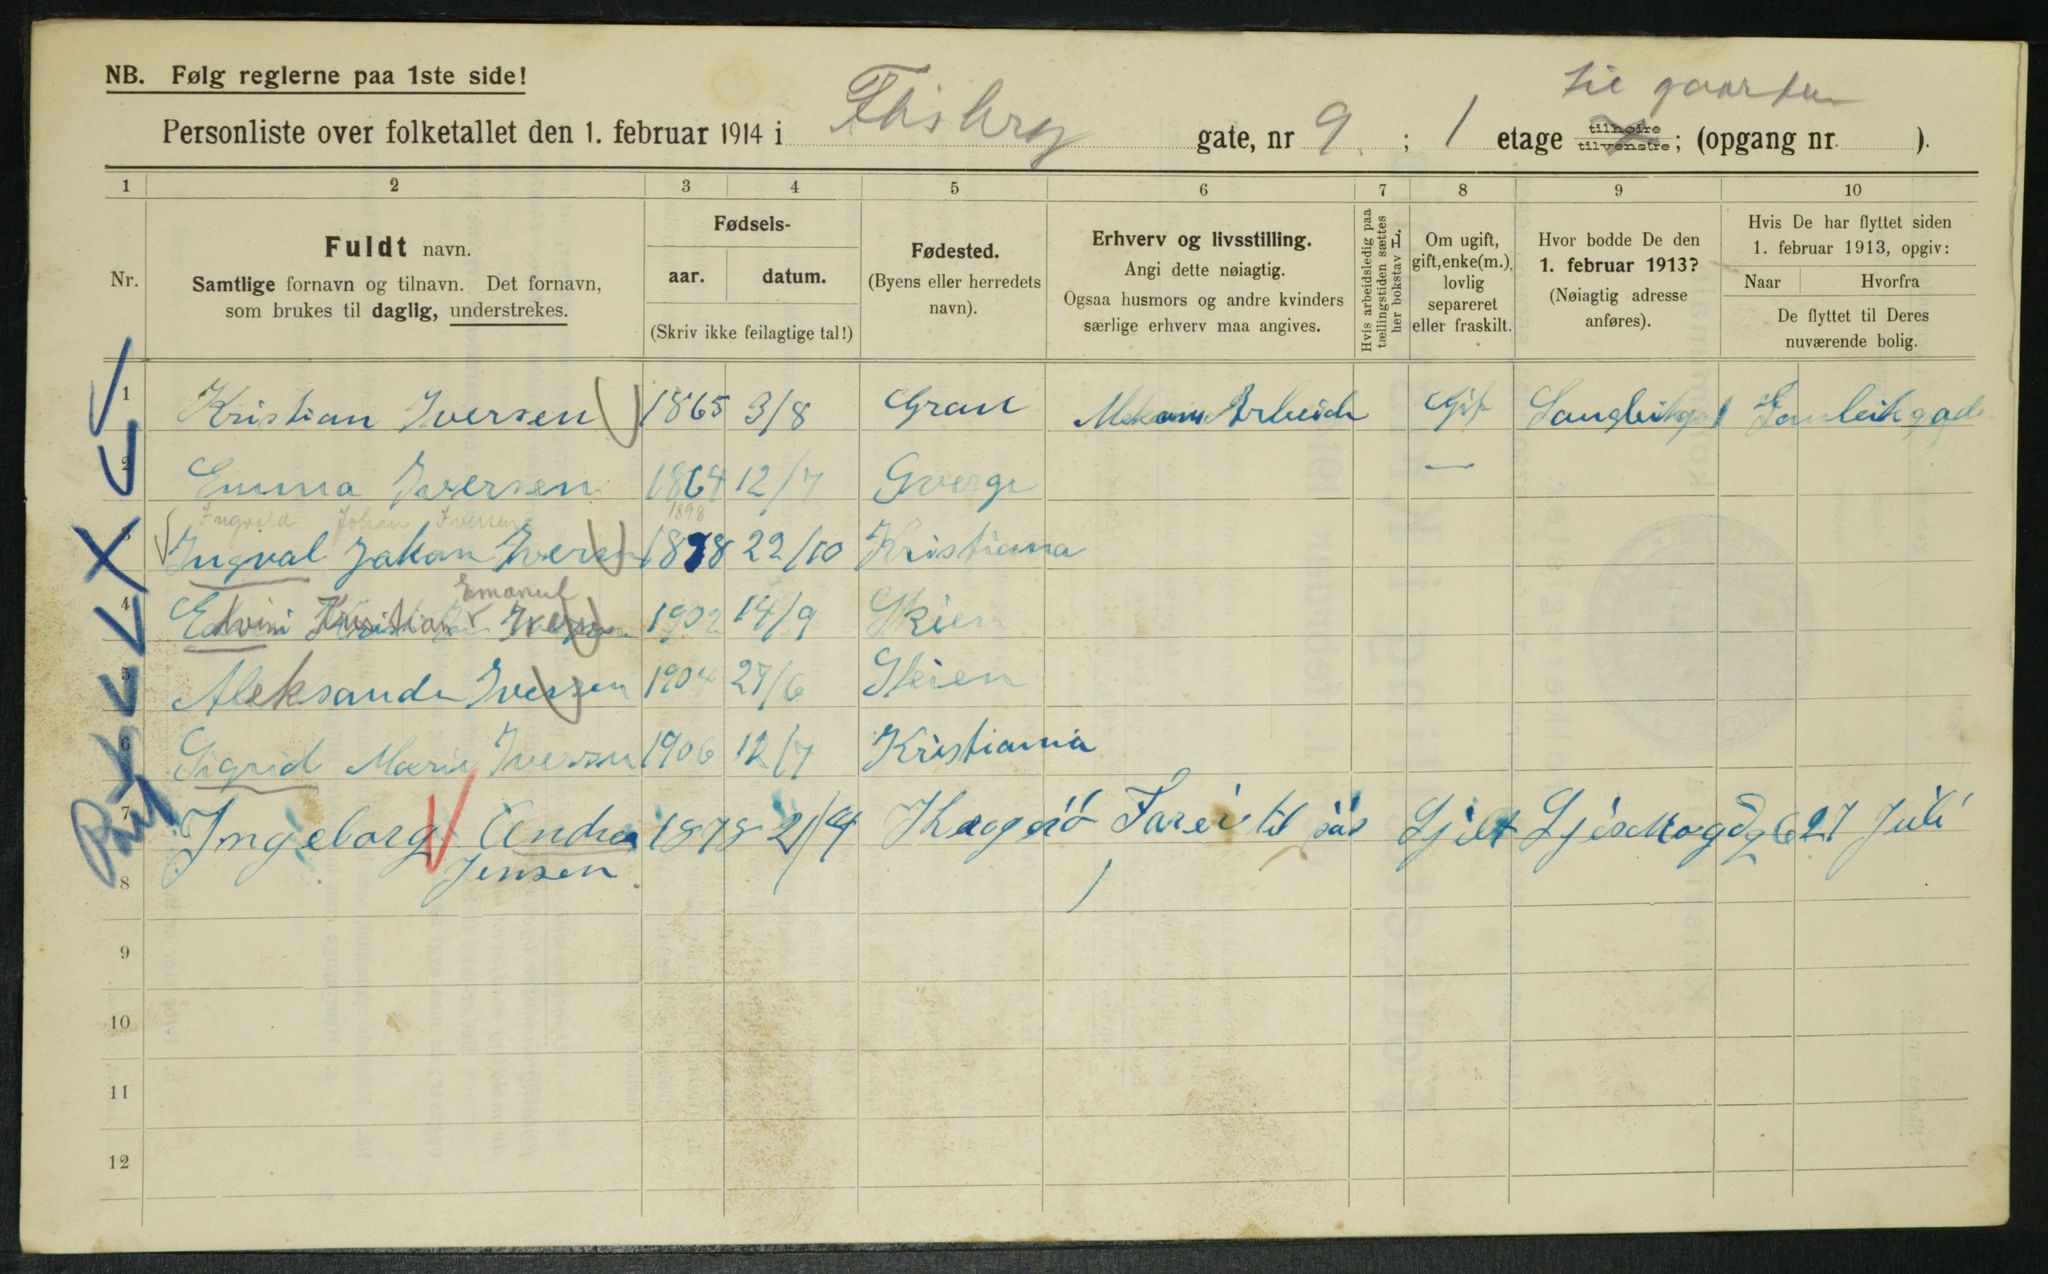 til gaarden
NB. Følg reglerne paa 1ste side!
Personliste over folketallet den 1. februar 1914 i Flisberg gate, nr 9. ; 1 etage tilhøire tilvenstre; (opgang nr. ).
1 2 3 4 5 6 7 8 9 10
Nr.
Fuldt navn.
Samtlige fornavn og tilnavn. Det fornavn,
som brukes til daglig, understrekes.
Fødsels-
aar. datum.
(Skriv ikke feilagtige tal!)
Fødested.
(Byens eller herredets
navn).
Erhverv og livsstilling.
Angi dette nøiagtig.
Ogsaa husmors og andre kvinders
særlige erhverv maa angives.
Hvis arbeidsledig paa
tællingstiden sættes
her bokstav L.
Om ugift,
gift, enke(m.),
lovlig
separeret
eller fraskilt.
Hvor bodde De den
1. februar 1913?
(Nøiagtig adresse
anføres).
Hvis De har flyttet siden
1. februar 1913, opgiv:
Naar Hvorfra
De flyttet til Deres
nuværende bolig.
1 Kristian Iversen 1865 3/8 Gran Mekanis Arbeide Gif
2 Emma Iversen 1864 12/7 Sverge —
Ingvald Johan Iversen 1898
3 Ingval Jakan Iversen 1898 22/10 Kristiana
Emanuel
4 Edvin Kristian Iversen 1902 14/9 Skien
5 Aleksander Iversen 1904 27/6 Skien
6 Sigrid Marie Iversen 1906 12/7 Kristiania
7 Ingeborg Andrea 1878 21/4 Kragerö 27 Juli
Jensen
8
9
10
11
12